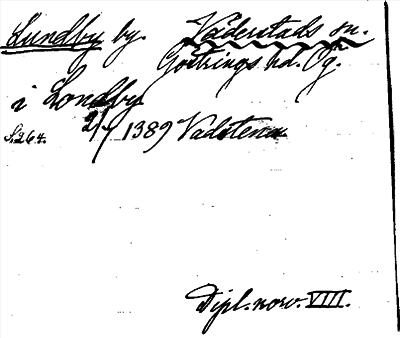 Lundby by. Väderstads sn.
Göstrings hd. Ög.
i Londby
S. 264. 2/7 1389 Vadstena
Dipl. norv. VIII.